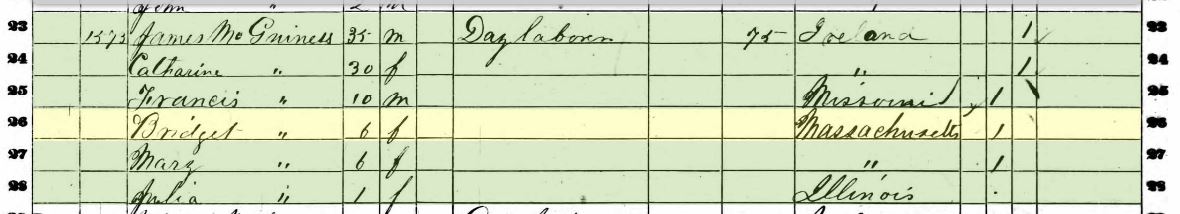 John " 2 m
23 1573 James McGuiness 35 m Day laborer 75 Ireland 1 23
24 Catharine " 30 f " 1 24
25 Francis " 10 m Missouri 1 25
26 Bridget " 6 f Massachusetts 1 26
27 Mary " 6 f " 1 27
28 Julia " 1 f Illinois 28